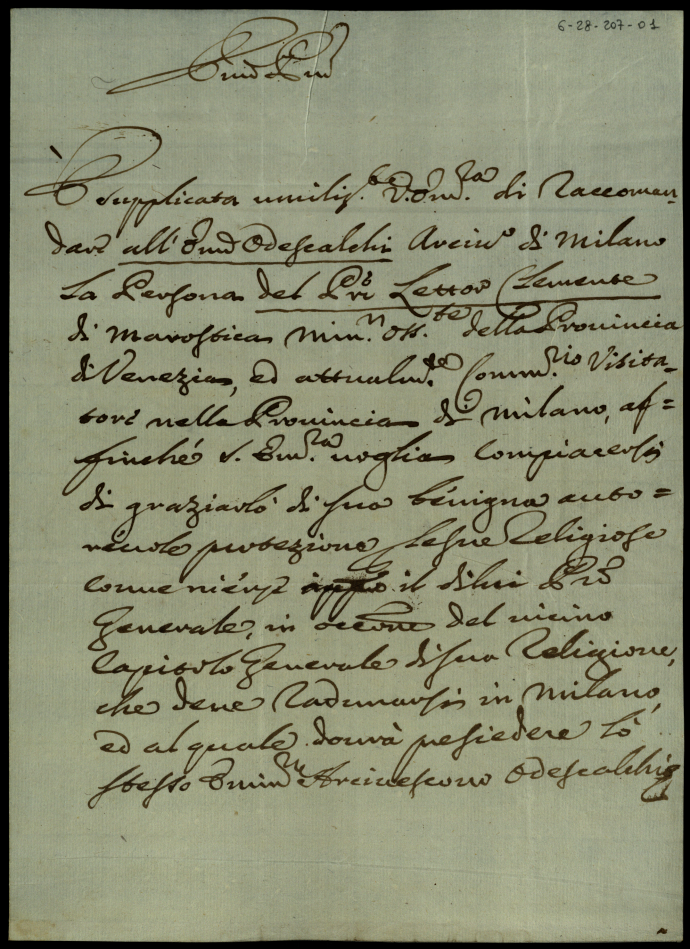 6-28-207-01
Emõ e Rmõ
È supplicata umiliss.te V. Em.za di Raccoman-
dare all' Emõ Odescalchi Arciv.o di Milano
La Persona del Prẽ Lettor Clemente
di Marostica Min.n Oss.te della Provincia
di Venezia, ed attualm.te Comm.rio Visita-
tore nella Provincia di Milano, af=
finché S. Em.za voglia compiacersi
di graziarlo di sua benigna auto=
revole protezione le sue Religiose
convenienze il di lui Prẽ
Generale, in occõne del vicino
Capitolo Generale di sua Religione,
che deve Radunarsi in Milano,
ed al quale dovrà presiedere lo
stesso Emin.mo Arcivescovo Odescalchi